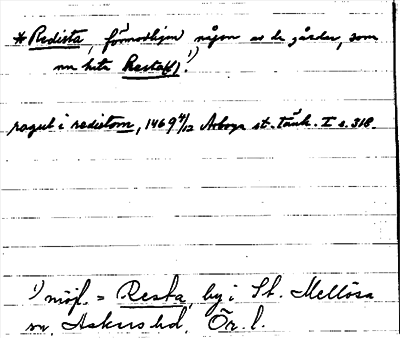 * Redista, förmodligen någon av de gårder, som
nu heta Restad)!¹)
ragut i redistom, 1469 4/12 Arboga st. tänk. I s. 318.
¹) möjl. = Resta, by i St. Mellösa
sn, Askers hd, Ör. l.